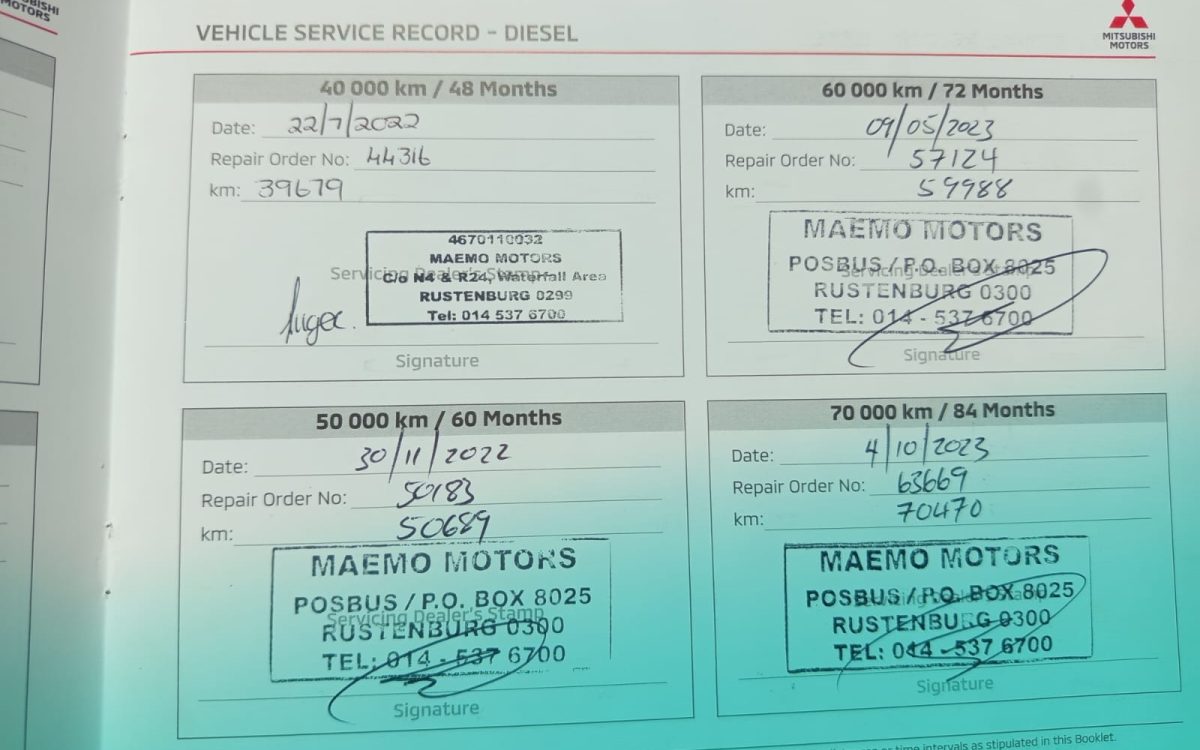 MITSUBISHI
MOTORS
VEHICLE SERVICE RECORD - DIESEL
MITSUBISHI
MOTORS
40 000 km / 48 Months
Date: 22/7/2022
Repair Order No: 44316
km: 39679
4670110032
MAEMO MOTORS
Servicing Dealer's Stamp
C/o N4 & R24, Waterfall Area
RUSTENBURG 0299
Tel: 014 537 6700
Signature
50 000 km / 60 Months
Date: 30/11/2022
Repair Order No: 50183
km: 50689
MAEMO MOTORS
POSBUS / P.O. BOX 8025
Servicing Dealer's Stamp
RUSTENBURG 0300
TEL: 014 - 537 6700
Signature
60 000 km / 72 Months
Date: 09/05/2023
Repair Order No: 57124
km: 59988
MAEMO MOTORS
POSBUS / P.O. BOX 8025
Servicing Dealer's Stamp
RUSTENBURG 0300
TEL: 014 - 537 6700
Signature
70 000 km / 84 Months
Date: 4/10/2023
Repair Order No: 63669
km: 70470
MAEMO MOTORS
POSBUS / P.O. BOX 8025
Servicing Dealer's Stamp
RUSTENBURG 0300
TEL: 014 - 537 6700
Signature
time intervals as stipulated in this Booklet.